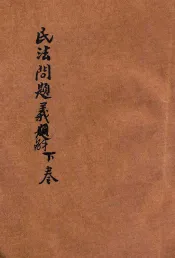 民法問題義題解下卷